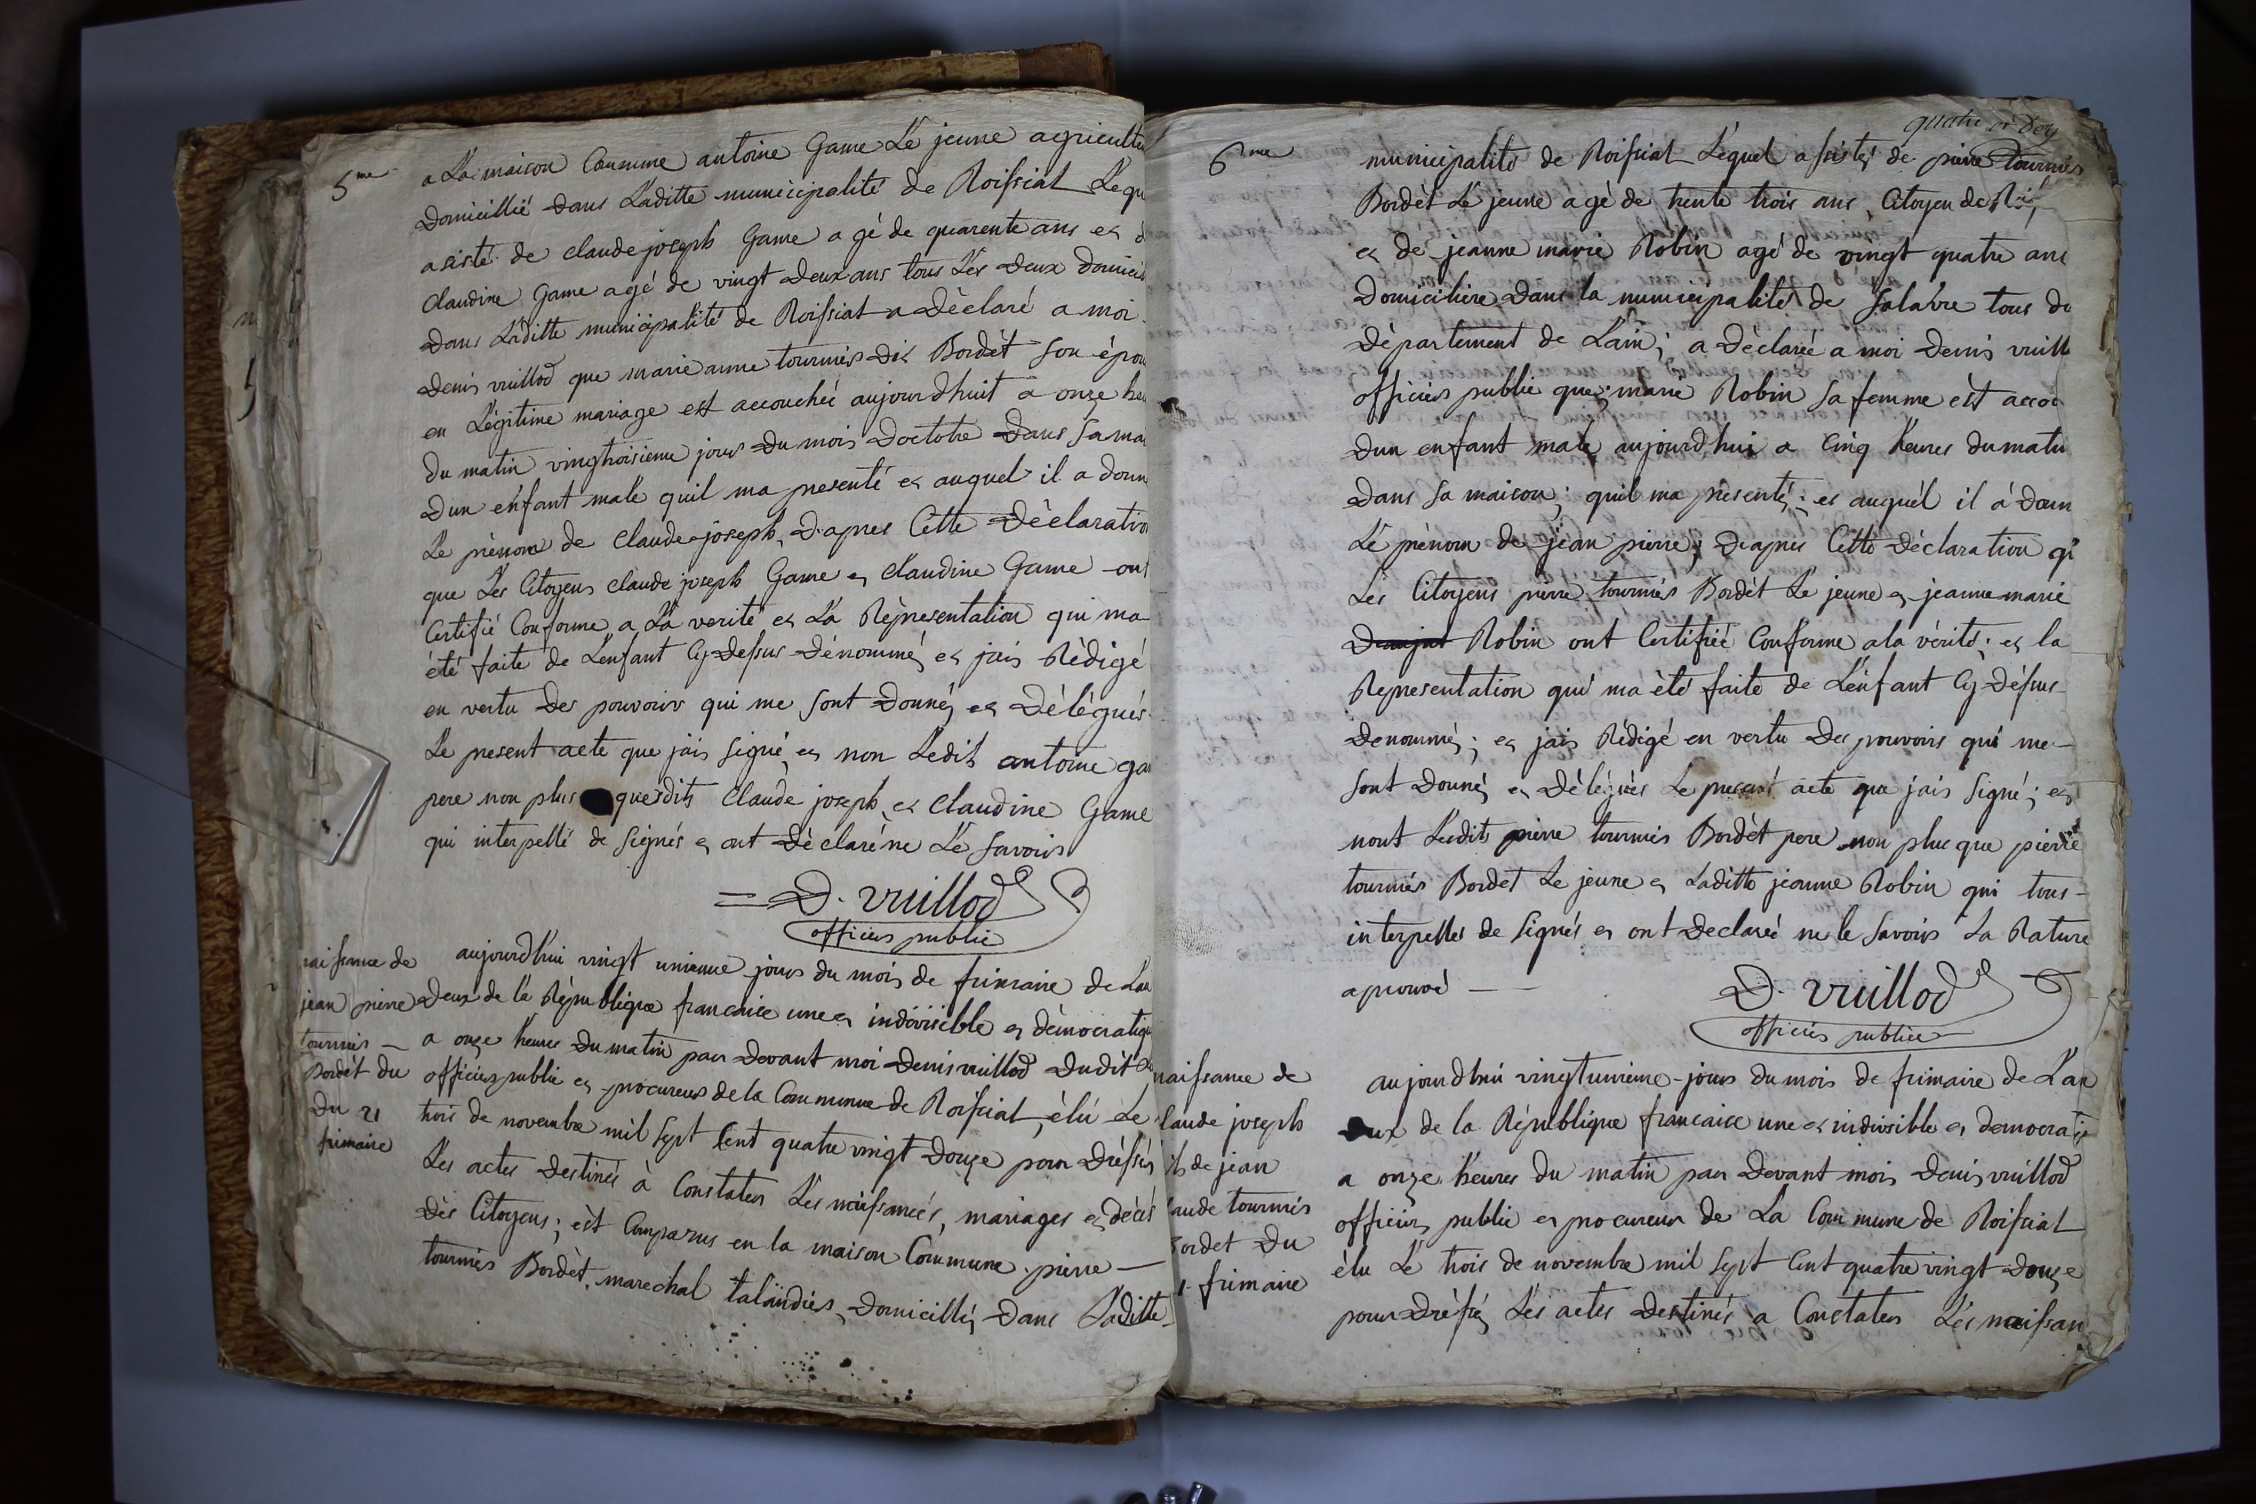 5me
a La maison Commune antoine Game Lé jeune agriculte
Domicillié Dans Laditte municipalité de Roissiat Lequ
asisté de claude joseph Game agé de quarente ans et d
Claudine Game agé de vingt Deux ans tous Lés Deux Domici
Dans Laditte municipalité de Roissiat a Dèclaré a moi
Denis vuillod que marie anne tournier Dit Bordèt son épou
en Légitime mariage est accouchéé aujourdhuit a onze heu
Du matin vingtroisieme jour Du mois Doctobre Dans sa mai
Dun enfant male quil ma presenté et auquel il a donn
Le prènom de Claude joseph, D'apres Cette Déclaration
que Les Citoyens Claude joseph Game et Claudine Game ont
Certifié Conforme a Là verité et Là Rèpresentation qui ma
été faite de Lenfant Cy Dessus Dénommé, et jais Rèdigé
en vertu Des pouvoirs qui me sont Donnés et Délégués
Le present acte que jais signé, et non Ledit antoine ga
pere non plus que dits Claude joseph et Claudine Game
qui interpellé de signér et ont Déclaré ne Lé savoir
D. vuillod
officier public
naissance de
jean pierre
tournier
Bordèt du
Du 21
frimaire
aujourdhui vingt unieme jour du mois de frimaire de Lan
Deux de la République francaise une et indivisible et démocratiqu
a onze heures Du matin par Devant moi Denis vuillod Dudit
officier public et procureur de la Commune de Roissiat, élu Le
trois de novembre mil sept Cent quatre vingt Douze pour Drésser
Les actes Destinés à Constater Lés naissancés, mariages et décés
Dés Citoyens; èst Comparus en la maison Commune pierre
tournier Bordèt, marechal talandier, Domicillié, Dans Laditte
quatre
6me
municipalité de Roissiat Lequel assisté de pierre tournier
Bordèt Lé jeune agè de trente trois ans, Citoyen de
et de jeanne marie Robin agé de vingt quatre ans
Domicilière Dans la municipalité de Salavre tous du
Dèpartement de Lain; a Déclaréé a moi Denis vuill
officier public que marie Robin sa femme èst accou
Dun enfant male aujourdhui a Cinq heures Du matin
Dans sa maison; quil ma présenté; et auquél il à Donn
Lé prènom de jean pierre; Dapres Cette Déclaration q
Les Citoyens pierre tournier Bordèt Le jeune et jeanne marie
Robin ont Certifiéé Conforme a la vérité; et la
Representation qui ma èté faite de Lénfant Cy Déssus
Denommé; et jais Rédigé en vertu Des pouvoirs qui me
sont Donné et Délégués Le present acte que jais signé; et
nont Ledit pierre tournier Bordèt pere non plus que pierre
tournier Bordet Le jeune et Laditte jeanne Robin qui tous
interpellés de signér et ont Declaréé ne le savoir La Rature
aprouvé
D. vuillod
officier public
naissance de
laude joseph
ils de jean
laude tournier
Bordet Du
1 frimaire
aujourdhui vingtunieme jour du mois de frimaire de Lan
Deux de la Rèpublique francaise une et indivisible et democrati
a onze heures Du matin par Devant mois Denis vuillod
officier public et procureur de La Commune de Roissiat
élu Lé trois de novembre mil sept Cent quatre vingt Douze
pour Drésser Lés actes Destinés a Constater Lés naissan